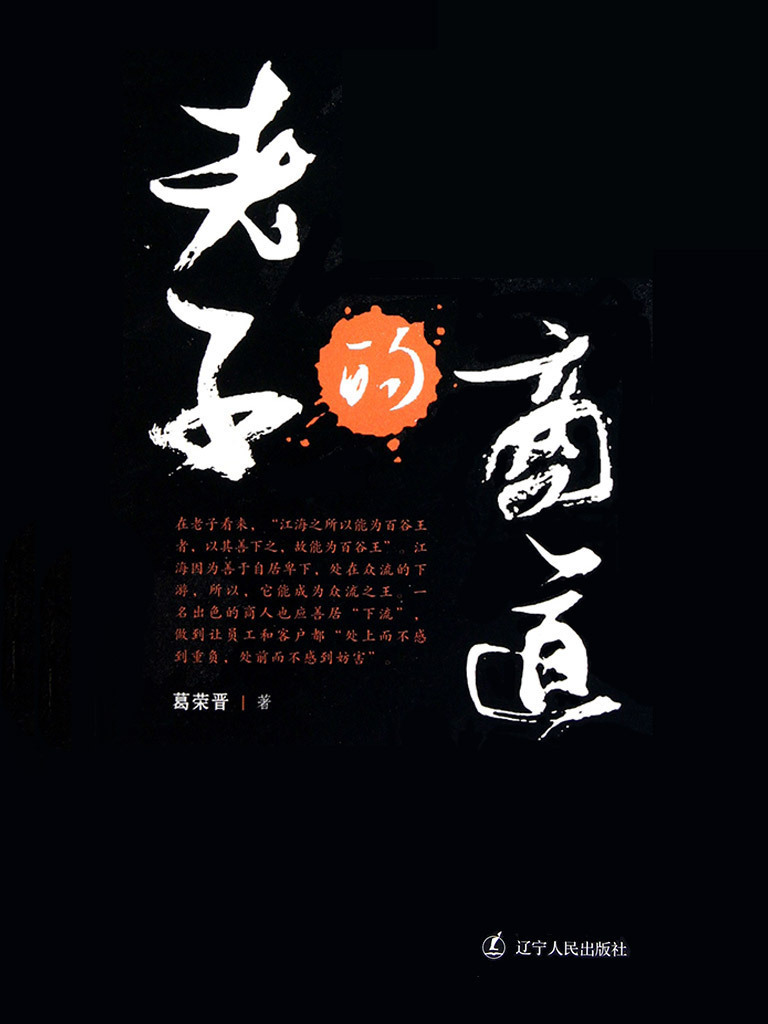 老子
的
商道
在老子看来，“江海之所以能为百谷王
者，以其善下之，故能为百谷王”。江
海因为善于自居卑下，处在众流的下
游，所以，它能成为众流之王。一
名出色的商人也应善居“下流”，
做到让员工和客户都“处上而不感
到重负，处前而不感到妨害”。
葛荣晋 | 著
辽宁人民出版社